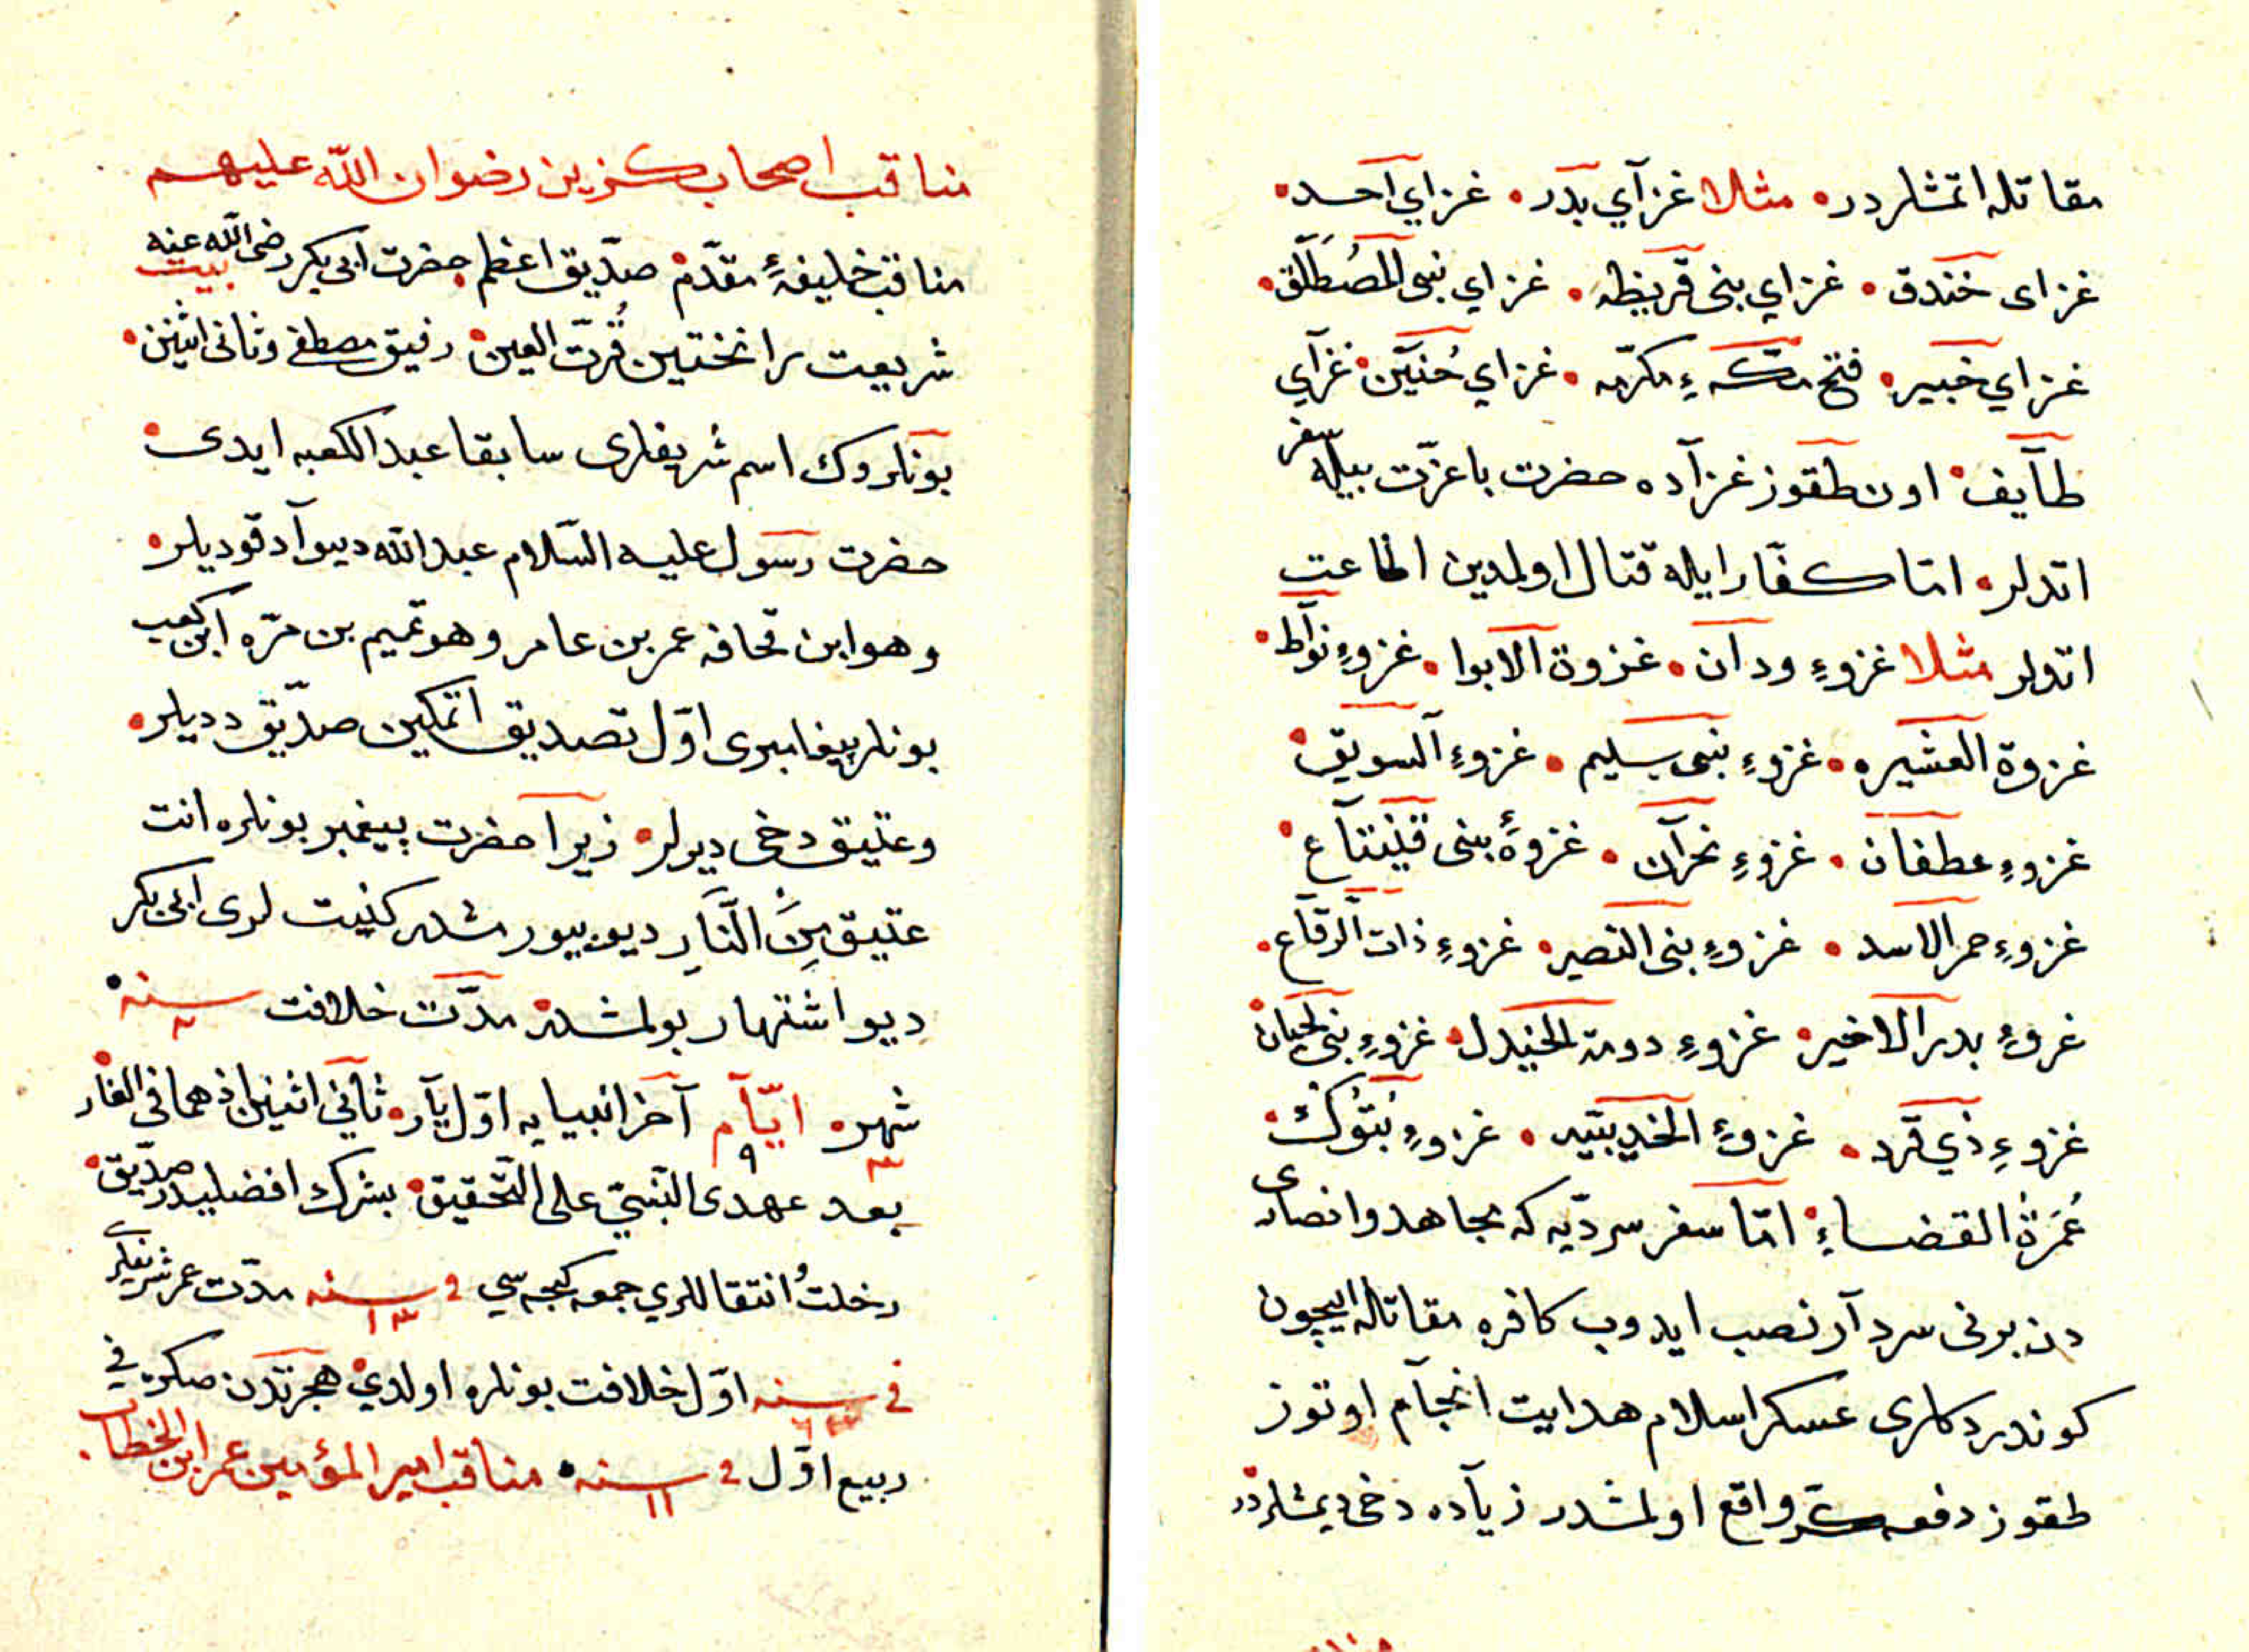 مقاتله اتمشلردر • مثلا غزآي بدر • غزاي احد •
غزاى خندق • غزاي بنى قريظه • غزاي بنى المصطلق •
غزاي خيبر • فتح مكّهٔ مكرّمه • غزاي حنين • غزآي
طآيف • اون طقوز غزآده حضرت با عزّت بيله سفر
اتدلر • امّا كفّار ايله قتال اولمدين اطاعت
اتدلر مثلا غزوءِ ودان • غزوة الابوا • غزوءِ نواط •
غزوة العشيره • غزوءِ بنى سليم • غزوءِ السويق •
غزوءِ عطفان • غزوءِ نحران • غزوهٔ بنى قينتاع •
غزوءِ حمر الاسد • غزوءِ بنى النصير • غزوءِ ذات الرقاع •
غزوءِ بدر الاخير • غزوءِ دومة الجندل • غزوءِ بنى لحيان •
غزوءِ ذي قرد • غزوءِ الحديبيه • غزوهِ تبوك •
عُمَرة القضاءِ • امّا سفر سرديّه كه مجاهد و انصارى
دن برنى سردآر نصب ايدوب كافره مقاتله ايچون
كوندردكلرى عسكر اسلام هدايت انجآم اوتوز
طقوز دفعه واقع اولمشدر زيآده دخى ديمشلردر
مناقب اصحاب كزين رضوان اللّه عليهم
مناقب خليفهٔ مقدّم • صدّيق اعظم • حضرت ابى بكر رضى اللّه عنه بيت
شريعت را نختين قُرّت العين • رفيق مصطفى وثانى اثنين •
بونلروك اسم شريفلرى سابقا عبد الكعبه ايدى •
حضرت رسول عليه السّلام عبد اللّه ديو آد قوديلر •
وهو ابن قحافه عمر بن عامر وهو تميم بن مرّه ابن كعب
بونلر پيغامبرى اوّل تصديق اتمكين صدّيق دديلر •
وعتيق دخى ديرلر • زيرا حضرت پيغمبر بونلره انت
عتيق مِنَ النَّارِ ديو بيورمشدر كنيت لرى ابى بكر
ديو اشتهار بولمشدر • مدّت خلافت سنه • ٢
شهر • ٣ ايّآم ٩ آخر انبيايه اوّل يآره ثآني اثنين اذهما في الغار
بعد عهدى النبيّ على التّحقيق • بشرك افضليدر صدّيق •
رخلت وُ انتقاللري جمعه كيجه سي فى سنه ١٣ مدّت عمر شريفلرى
فى سنه ٦٣ اوّل خلافت بونلره اولدي • هجرتدن صكره في
ربيع اوّل فى سنه ١١ • مناقب امير المؤمنين عمر ابن الخطاب •